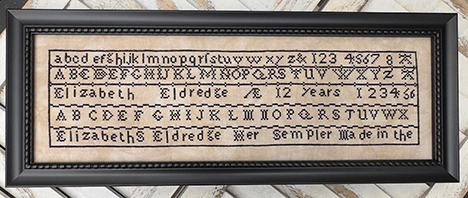 abcdefghijklmnopqrſstuvwxyz& 1234567 8
ABCDEFGHIJKLMNOPQRSTUVWXYZ
Elizabeth Eldredge Æ 12 Years 1 2 3 4 56
ABCDEFGHIJKLMNOPQRSTUVWX
Elizabeths Eldredge Her Sempler Made in the